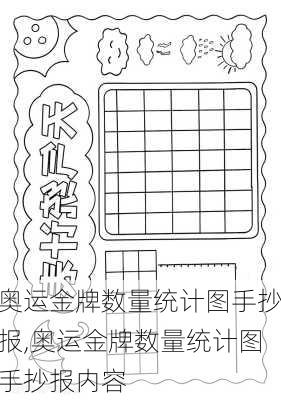 天气统计表
奥运金牌数量统计图手抄
报,奥运金牌数量统计图
手抄报内容